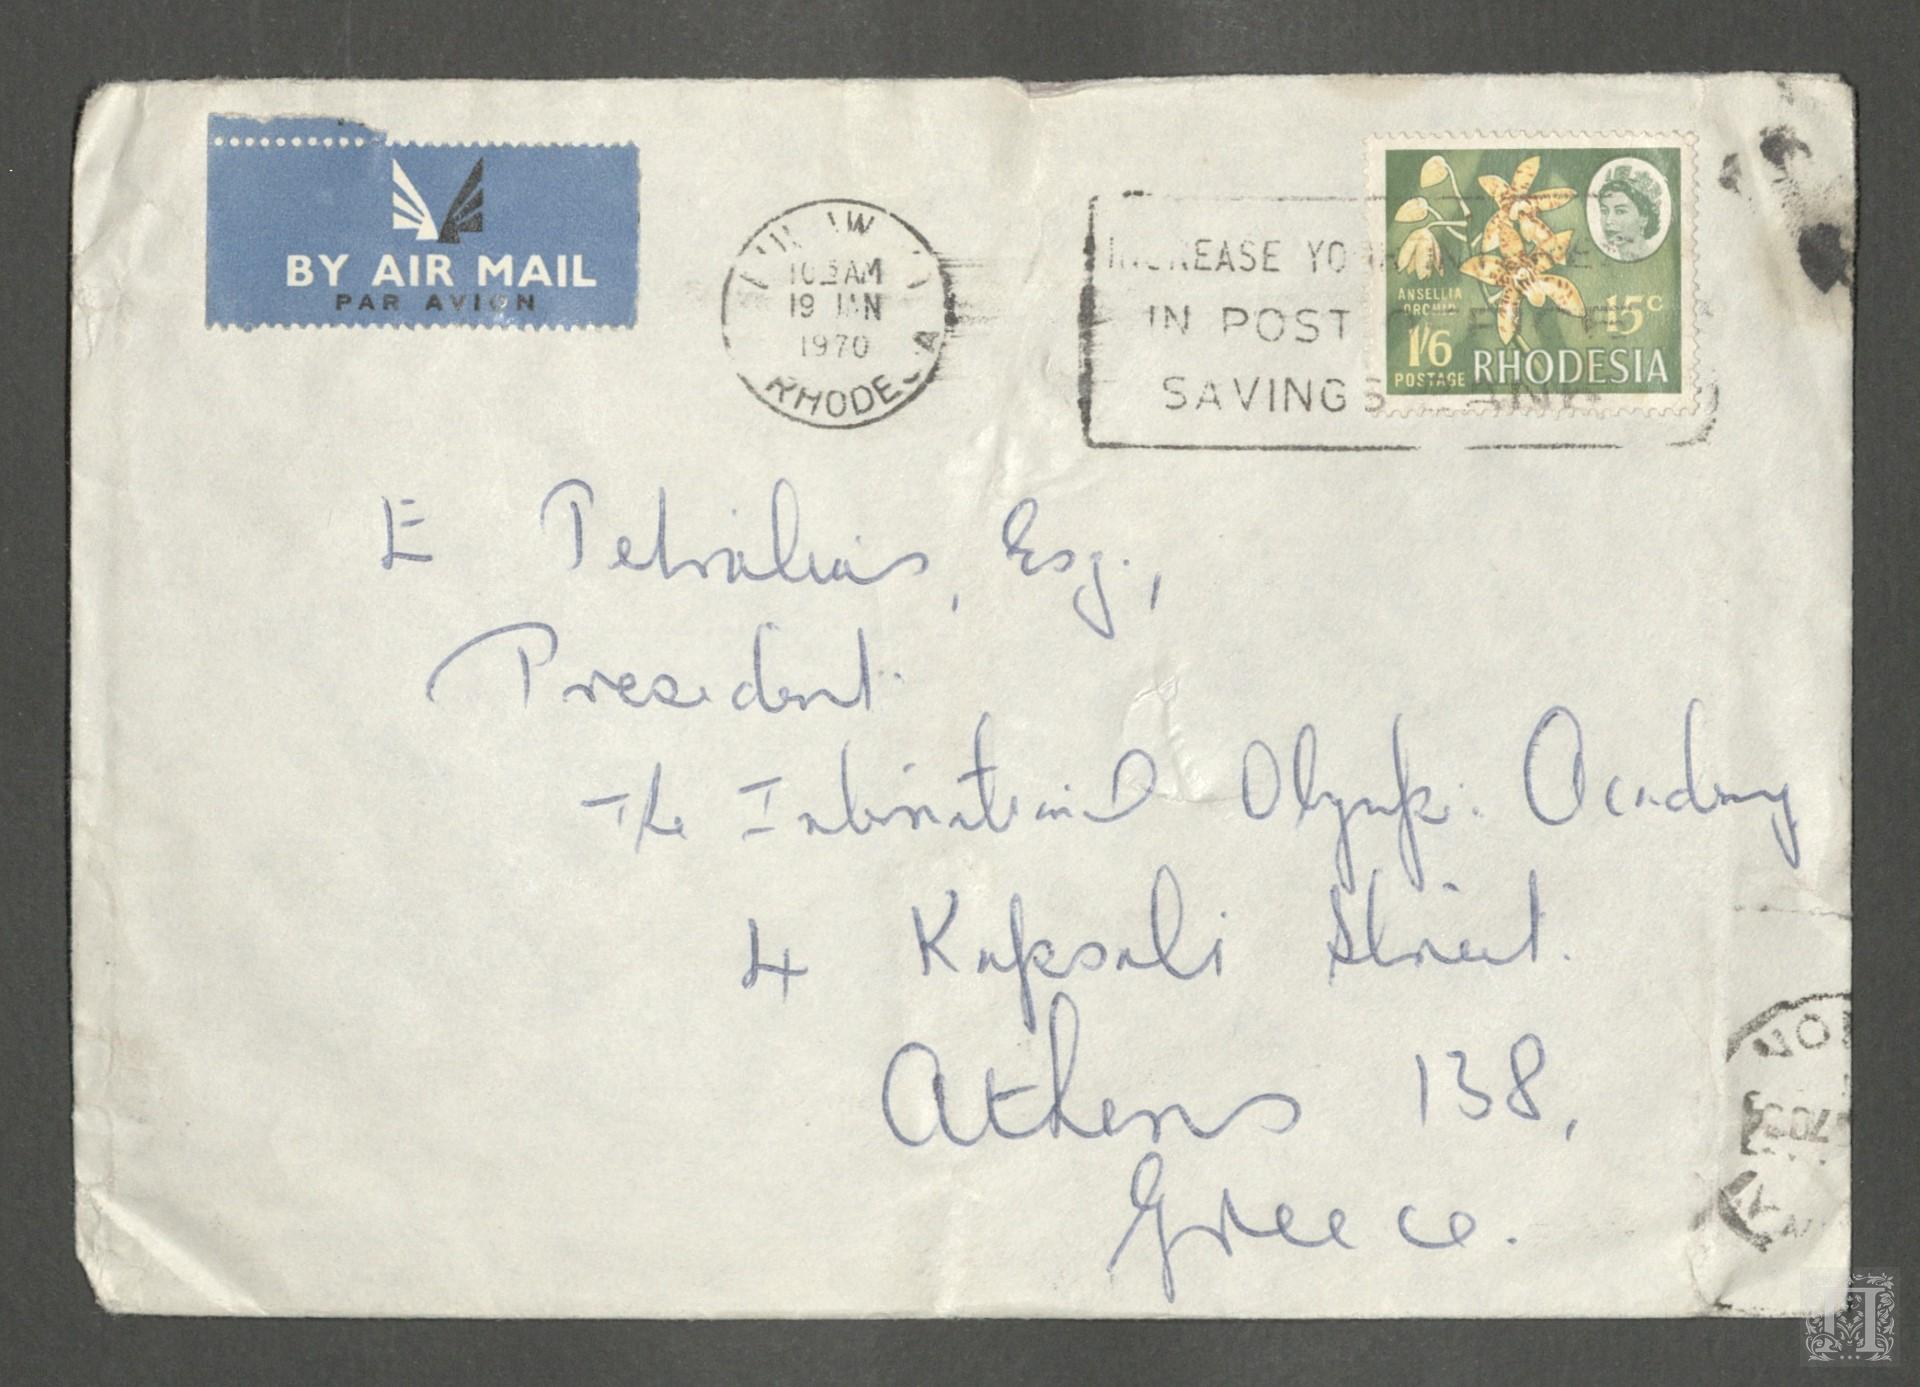 BY AIR MAIL
PAR AVION
10 AM
19 JAN
1970
RHODESIA
INCREASE YOUR
IN POST OFFICE
SAVINGS BANK
ANSELLIA
ORCHID
15c
1/6
POSTAGE
RHODESIA
E Petralias, Esq.,
President
The International Olympic Academy
4 Kapsali Street.
Athens 138,
Greece.